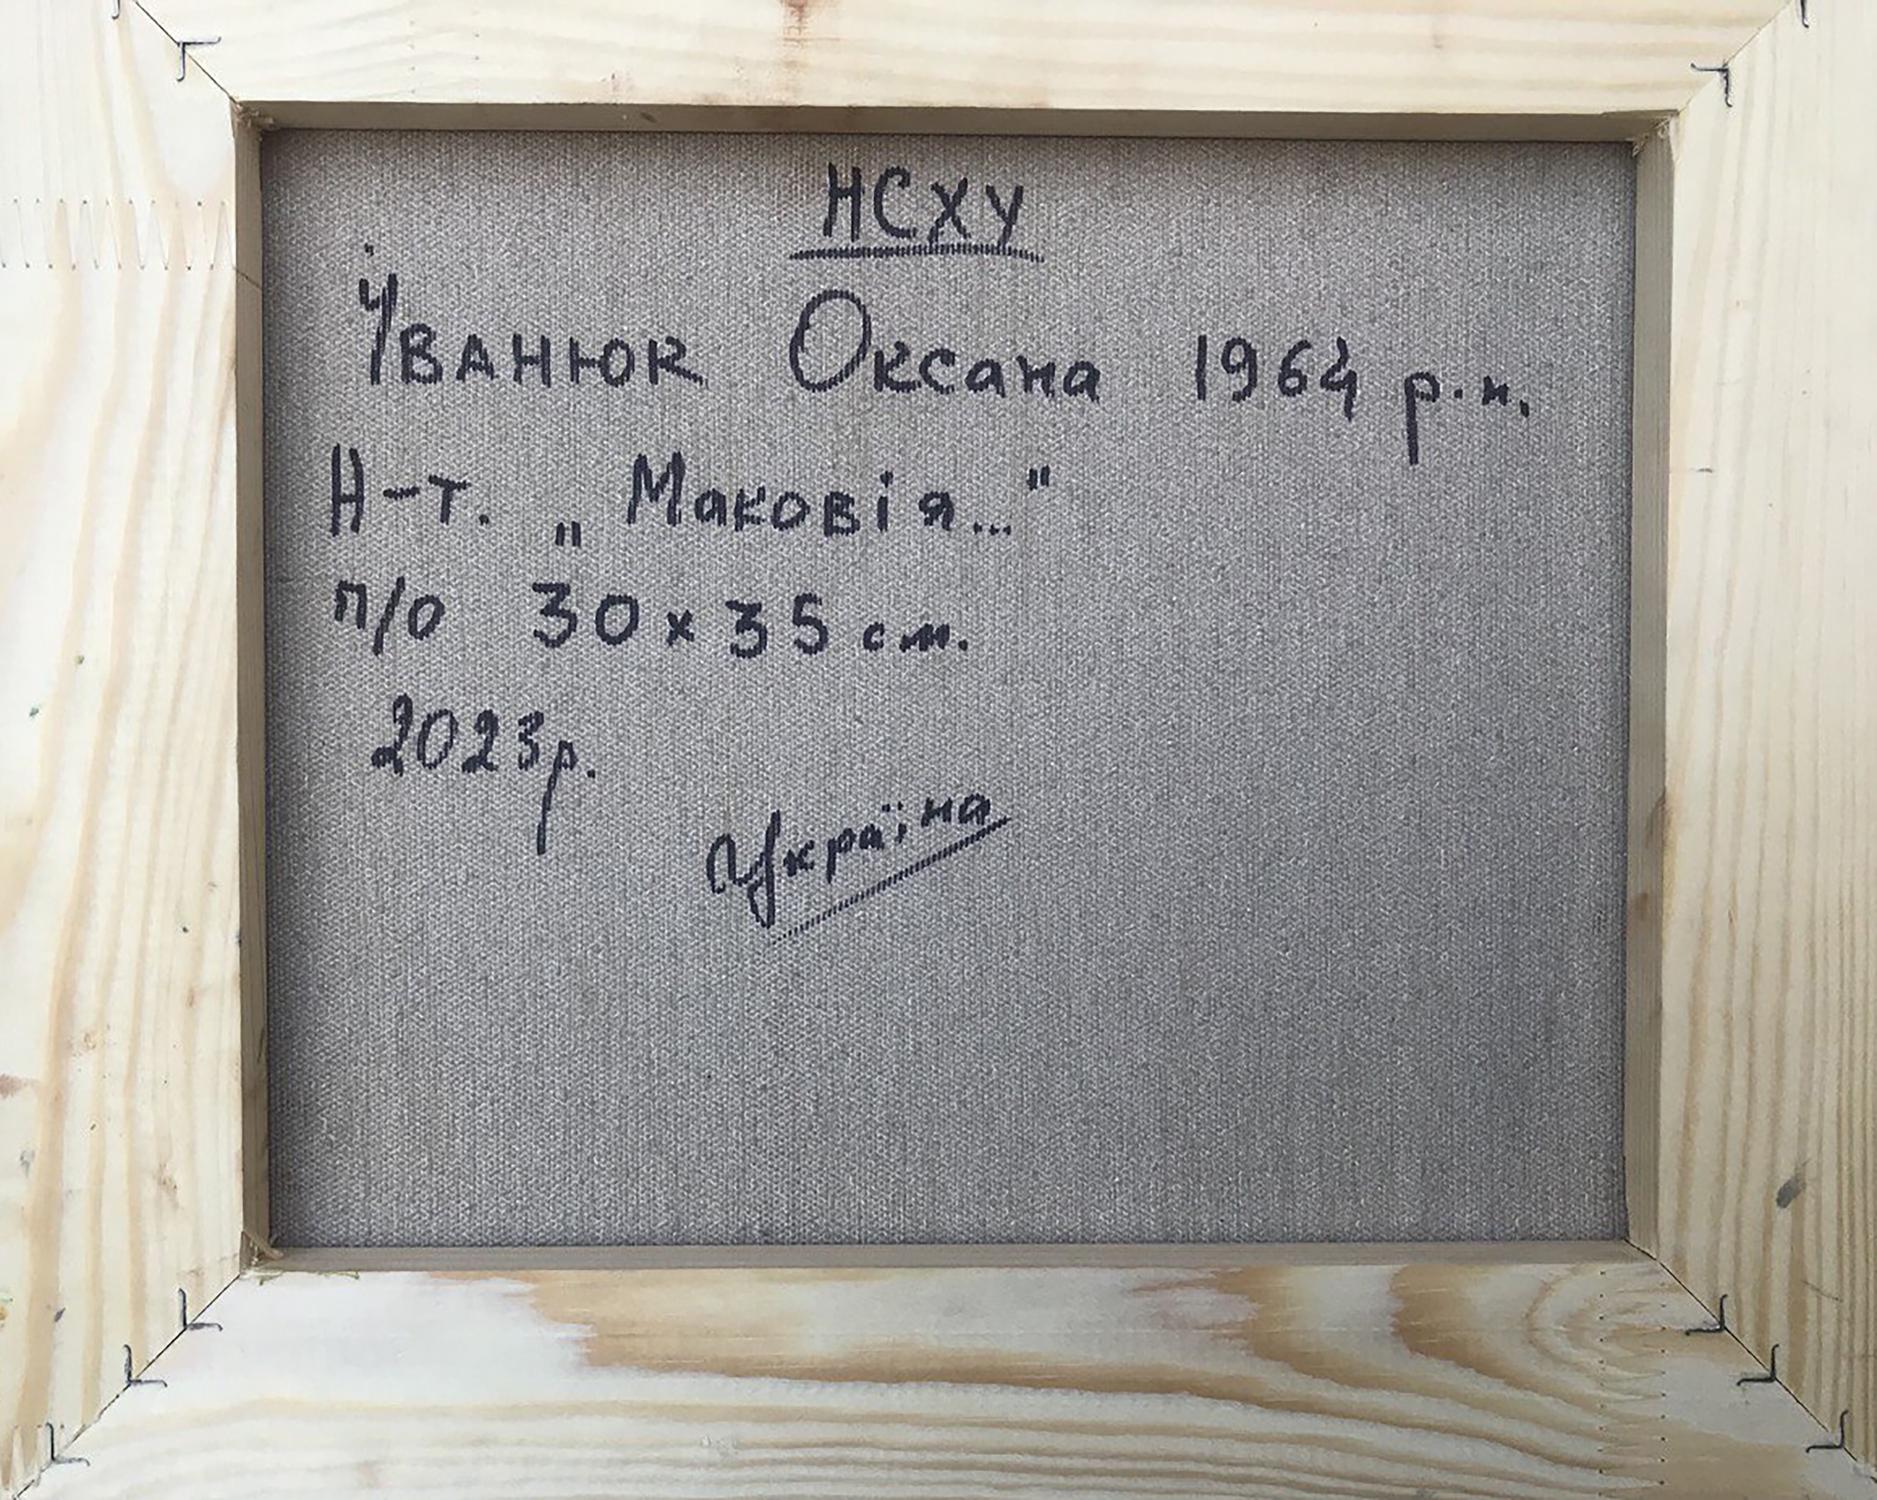 НСХУ
Іванюк Оксана 1964 р.н.
Н-т. „Маковія..."
п/о 30 х 35 см.
2023р.
Україна